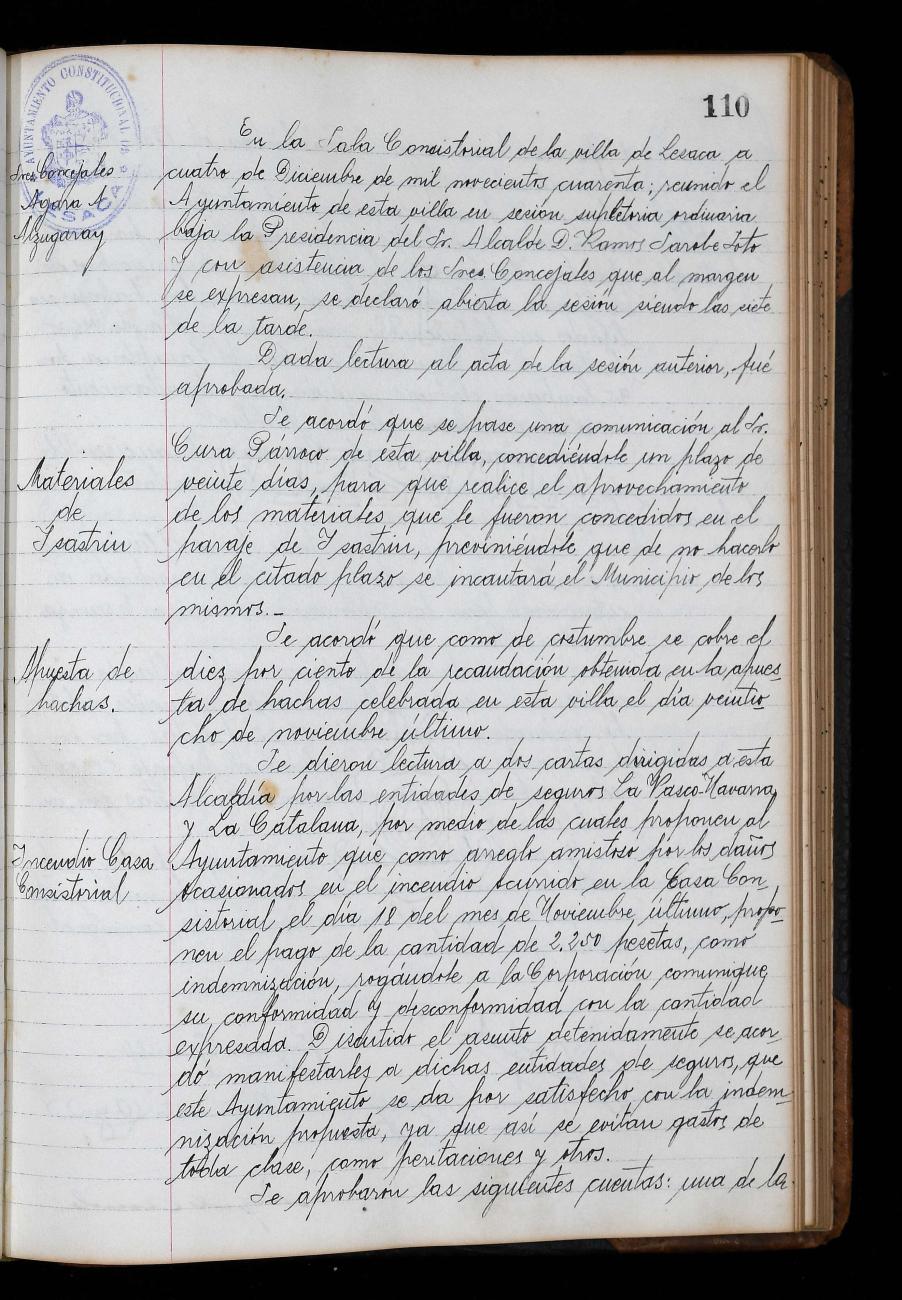 110
AYUNTAMIENTO CONSTITUCIONAL DE
LESACA
Sres. Concejales
Agara A
Alzugaray
En la Sala Consistorial de la villa de Lesaca a
cuatro de Diciembre de mil novecientos cuarenta; reunido el
Ayuntamiento de esta villa en sesión supletoria ordinaria
baja la Presidencia del Sr. Alcalde D. Ramos Sarobe Soto
y con asistencia de los Sres. Concejales que al margen
se expresan, se declaró abierta la sesión siendo las siete
de la tarde.
Dada lectura al acta de la sesión anterior, fué
aprobada.
Materiales
de
Isastrin
Se acordó que se pase una comunicación al Sr.
Cura Párroco de esta villa, concediéndole un plazo de
veinte días, para que realice el aprovechamiento
de los materiales que le fueron concedidos en el
paraje de Isastrin, previniéndole que de no hacerlo
en el citado plazo se incautará el Municipio de los
mismos.-
Apuesta de
hachas.
Se acordó que como de costumbre se cobre el
diez por ciento de la recaudación obtenida en la apues-
ta de hachas celebrada en esta villa el día veintio-
cho de noviembre último.
Incendio Casa
Consistorial
Se dieron lectura a dos cartas dirigidas a esta
Alcaldía por las entidades de seguros La Vasco-Navarra
y La Catalana, por medio de las cuales proponen al
Ayuntamiento que como arreglo amistoso por los daños
ocasionados en el incendio ocurrido en la Casa Con-
sistorial el día 18 del mes de Noviembre último, propo-
nen el pago de la cantidad de 2.250 pesetas, como
indemnización, rogándole a la Corporación comunique
su conformidad y desconformidad con la cantidad
expresada. Discutido el asunto detenidamente se acor-
dó manifestarles a dichas entidades de seguros, que
este Ayuntamiento se da por satisfecho con la indem-
nización propuesta, ya que así se evitan gastos de
toda clase, como peritaciones y otros.
Se aprobaron las siguientes cuentas: una de la